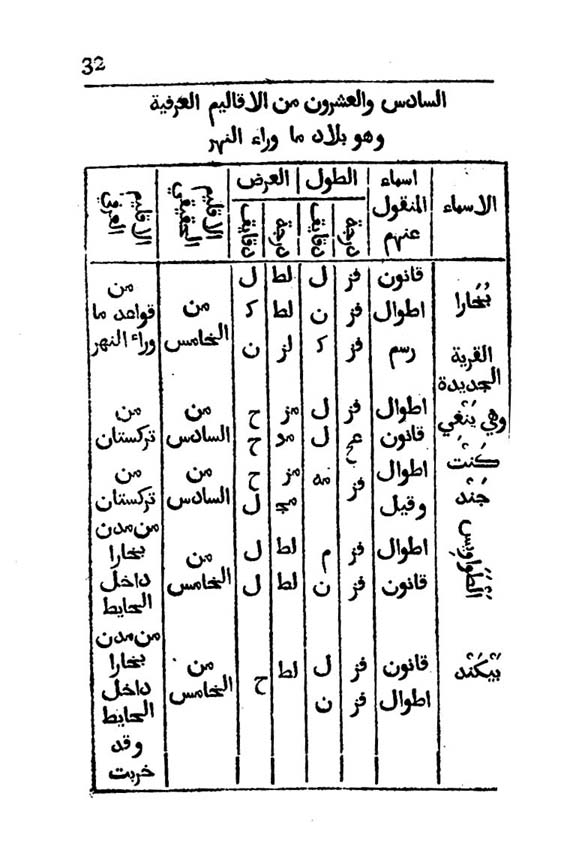 32
السادس والعشرون من الاقاليم العرفية
وهو بلاد ما وراء النهر
الاسماء | اسماء المنقول عنهم | الطول | العرض | الاقليم الحقيقي | الاقليم العرفي
درجة | دقايق | درجة | دقايق
بُخَارا | قانون | فز | ل | لط | ل | من الخامس | من قواعد ما وراء النهر
اطوال | فز | ن | لط | ك
رسم | فز | ك | لز | ن
القرية الجديدة وهي يَنْغي كَنْت | اطوال | فز | ل | مز | ح | من السادس | من تركستان
قانون | ل | مد | ح
جَنْد | اطوال | فز | مه | مز | ح | من السادس | من تركستان
وقيل | مج | ل
الطَّوَاوِيس | اطوال | فز | م | لط | ل | من الخامس | من مدن بخارا داخل الحايط
قانون | فز | ن | لط | ل
بَيْكَنْد | قانون | فز | ل | لط | ح | من الخامس | من مدن بخارا داخل الحايط وقد خربت
اطوال | فز | ن